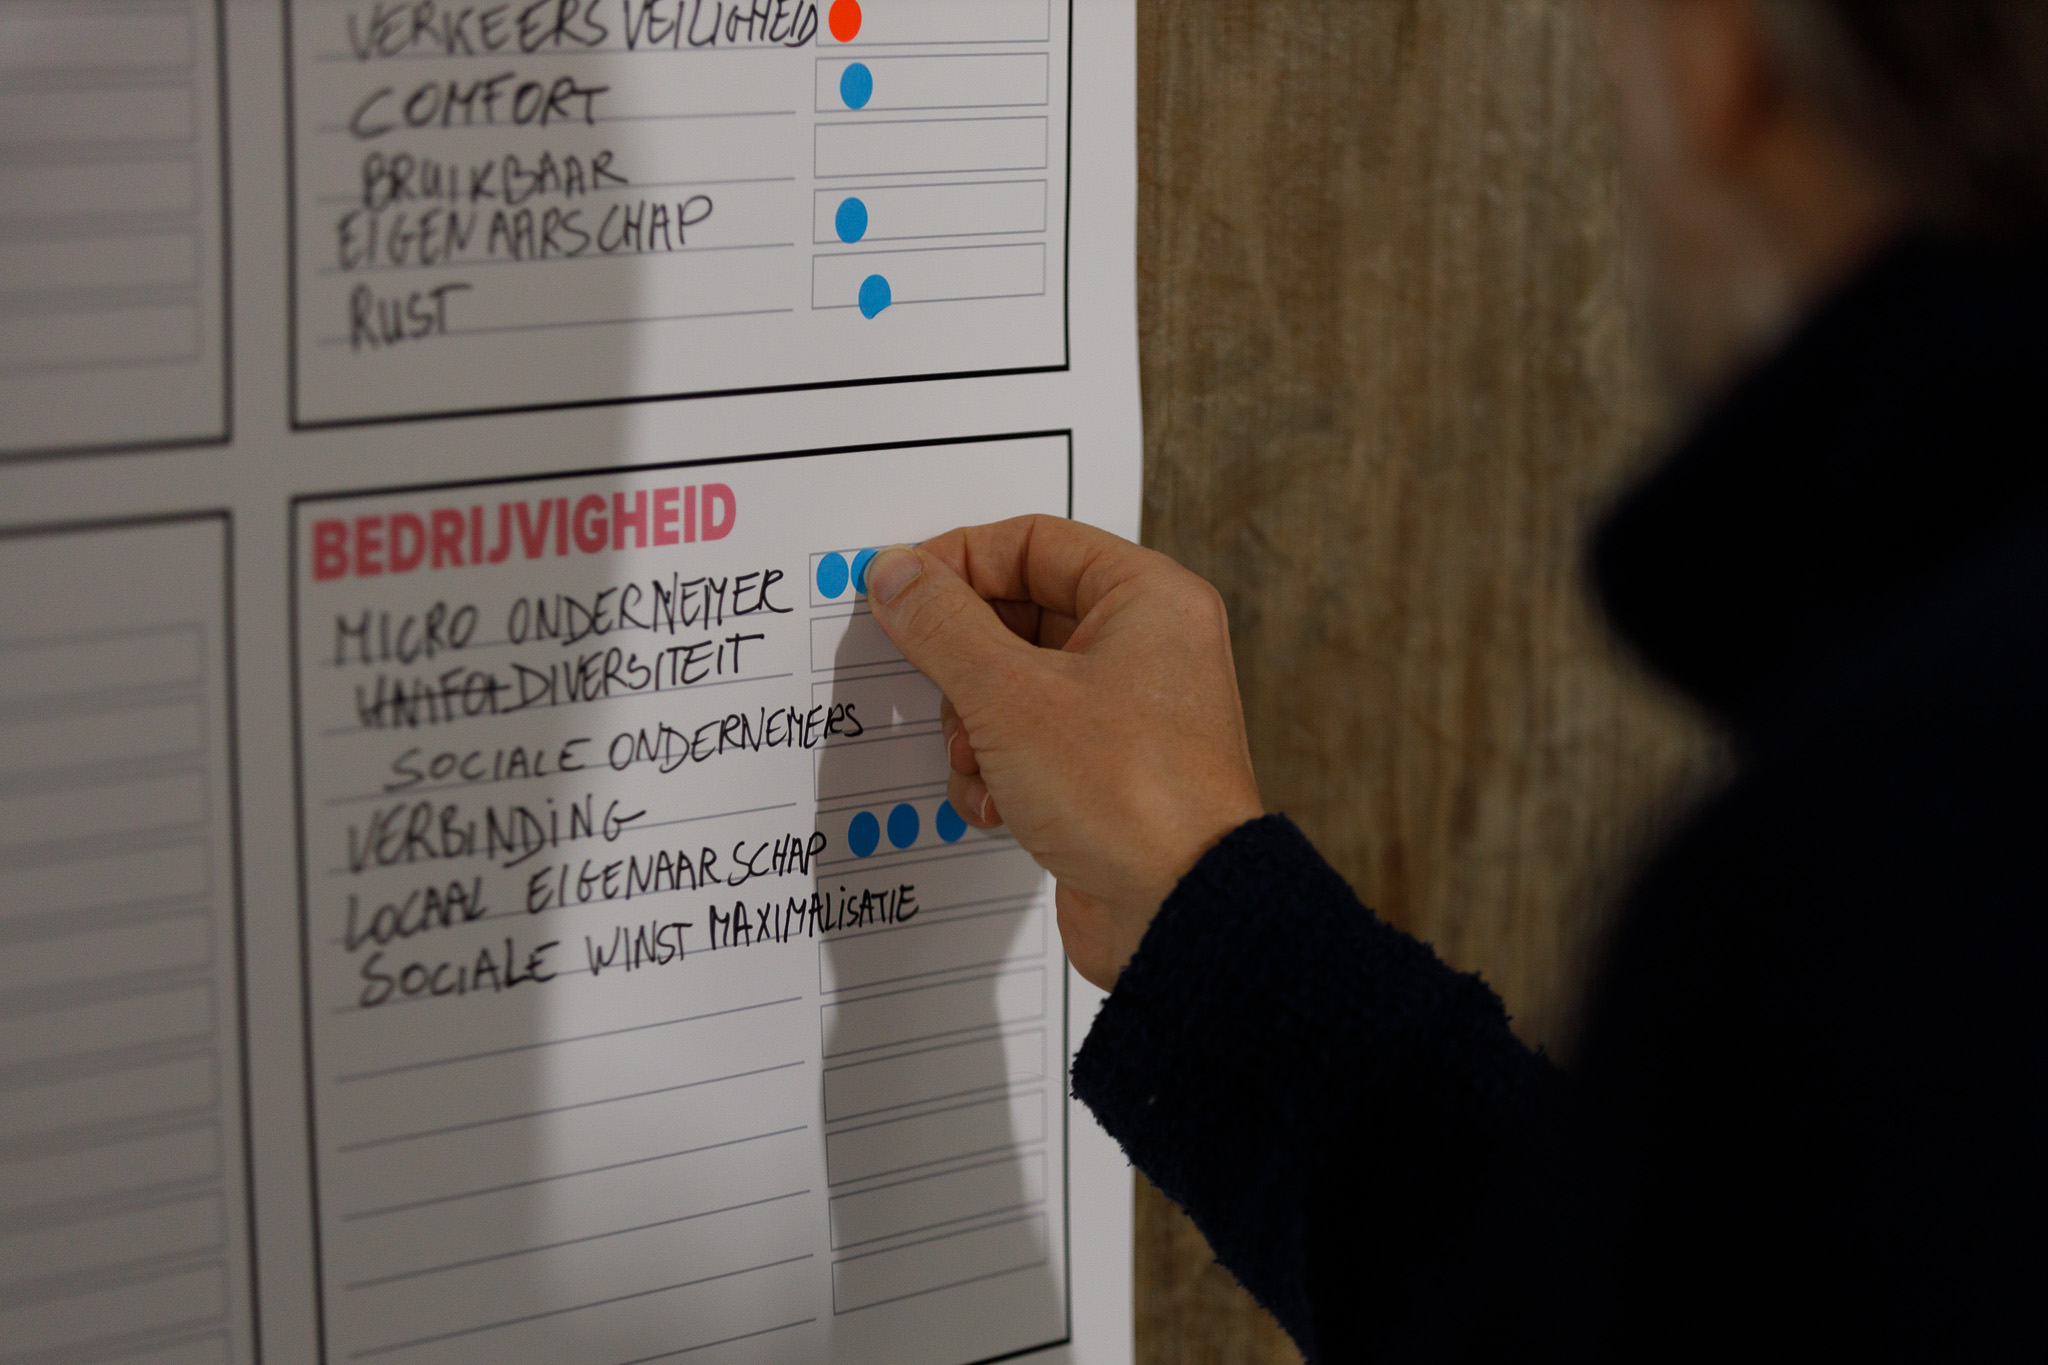 VERKEERSVEILIGHEID
COMFORT
BRUIKBAAR
EIGENAARSCHAP
RUST
BEDRIJVIGHEID
MICRO ONDERNEMER
DIVERSITEIT
SOCIALE ONDERNEMERS
VERBINDING
LOCAAL EIGENAARSCHAP
SOCIALE WINST MAXIMALISATIE